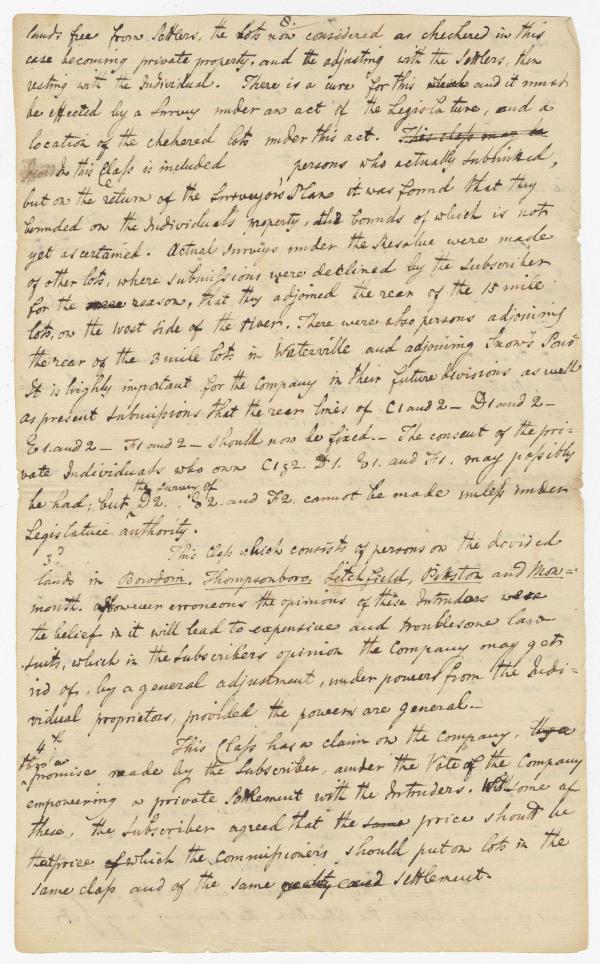 8.
lands free from Settlers, the lots now considered as checkered in this
case becoming private property, and the adjusting with the Settlers, then
resting with the Individual. There is a cure for this and it must
be effected by a Survey under an act of the Legislature, and a
location of the chekered lots under this act. This class may be
In this Class is included persons who actually submitted,
but on the return of the Surveyors Plan it was found that they
bounded on the Individual's property, the bounds of which is not
yet ascertained. Actual surveys under the Resolve were made
of other lots, where submissions were declined by the subscriber
for the reason, that they adjoined the rear of the 15 mile
lots, on the West side of the river. There were also persons adjoining
the rear of the 3 mile lots in Waterville and adjoining Snow's Pond
It is highly important for the Company in their future divisions as well
as present submissions that the rear lines of C1 and 2 – D1 and 2 –
E1. and 2 – F1 and 2 – should now be fixed. – The consent of the pri-
vate Individuals who own C1 & 2. D1. E1. and F1. may possibly
be had; but the survey of D2. E2. and F2. cannot be made unless under
Legislative authority.
3.d This class which consists of persons on the divided
lands in Bowdoin, Thompsonboro, Litchfield, Pittston and Mon-
mouth. However erroneous the opinions of these Intruders were
the belief in it will lead to expensive and troublesome law
suits, which in the subscribers opinion the Company may get
rid of, by a general adjustment, under powers from the Indi-
vidual proprietors, provided the powers are general. –
4.th This Class has a claim on the Company,
thro' a promise made by the Subscriber, under the Vote of the Company
empowering a private Settlement with the Intruders. With some of
these, the subscriber agreed that the same price should be
that price of which the Commissioners should put on lots in the
same class and of the same quality and settlement.